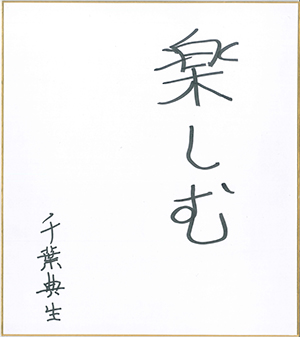 楽しむ
千葉典生